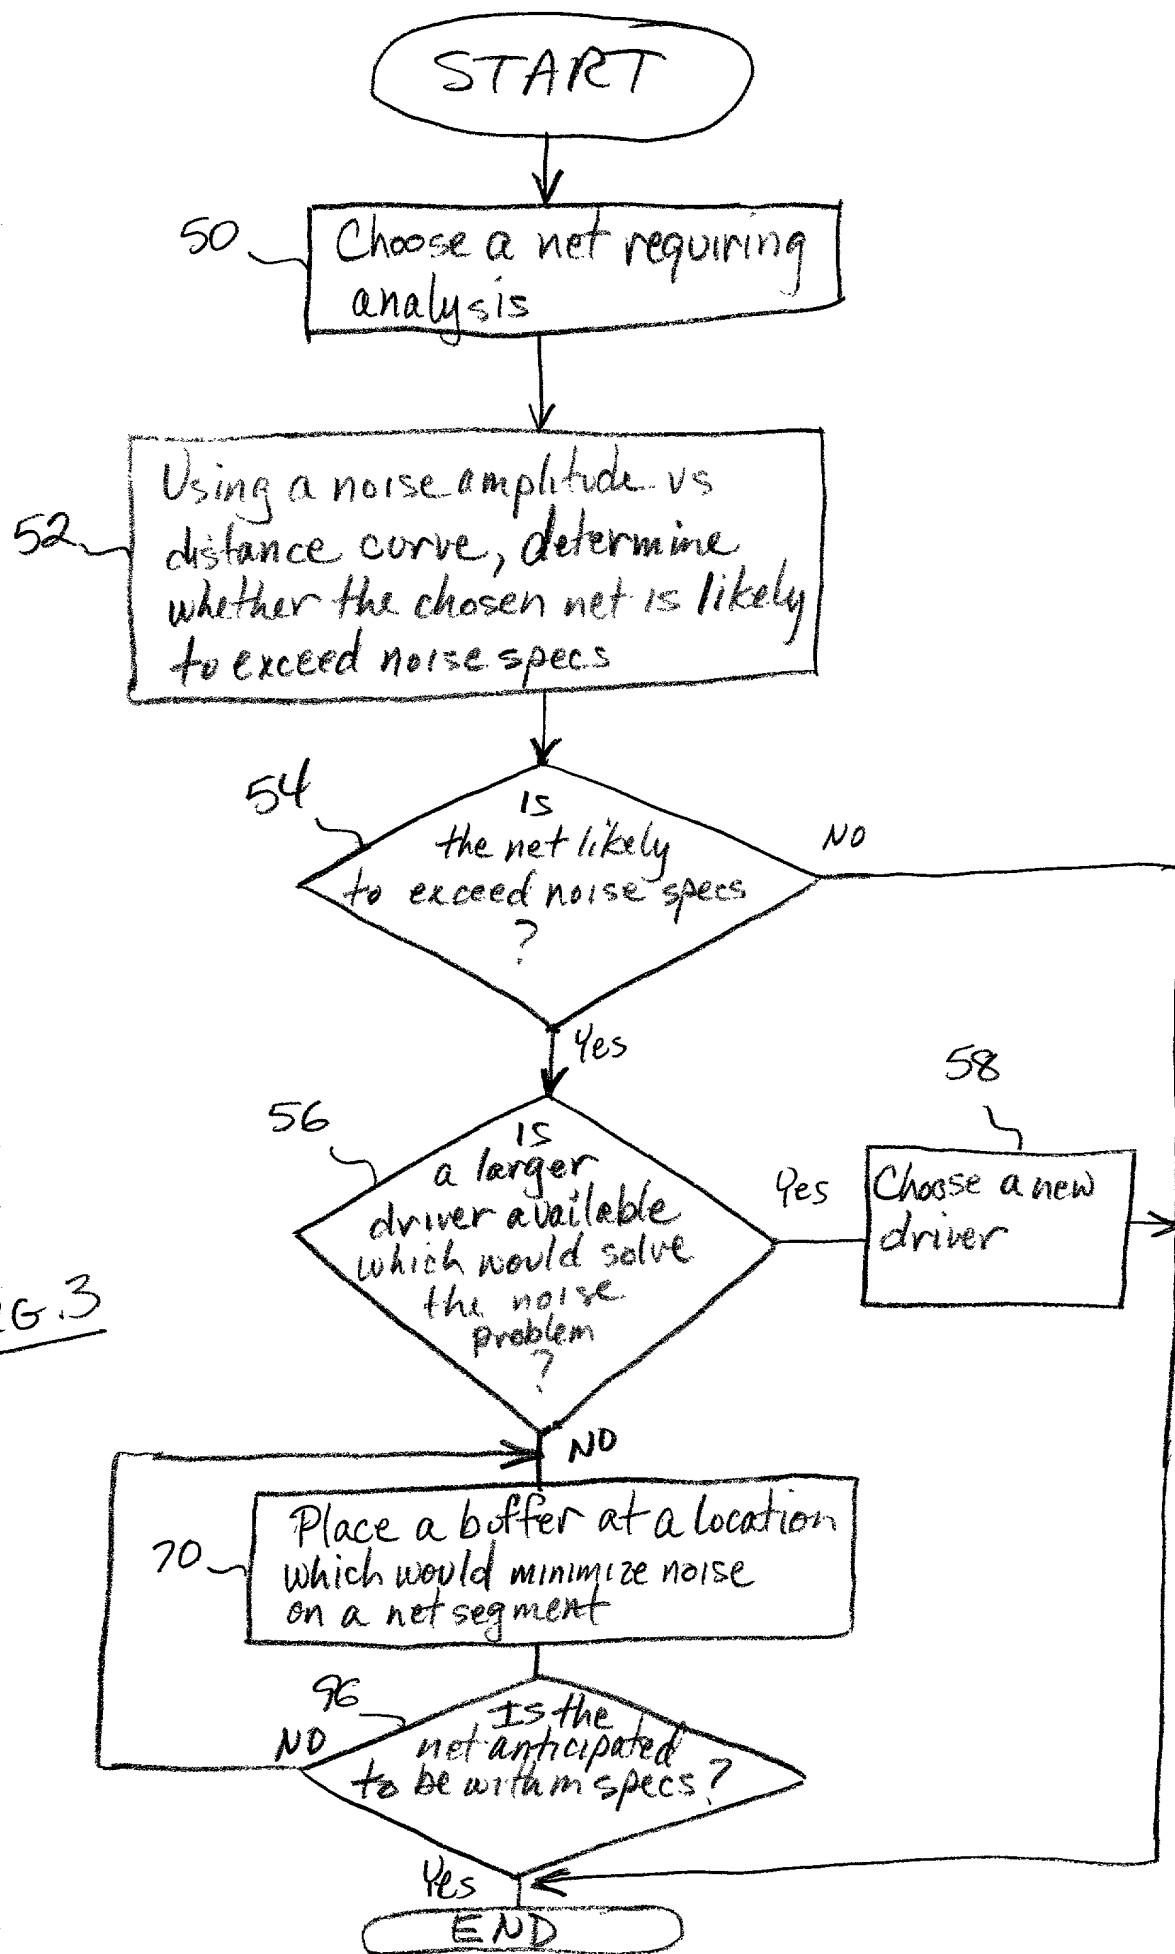 START
50
Choose a net requiring
analysis
52
Using a noise amplitude vs
distance curve, determine
whether the chosen net is likely
to exceed noise specs
54
IS
the net likely
to exceed noise specs
?
NO
Yes
56
IS
a larger
driver available
which would solve
the noise
problem
?
Yes
58
Choose a new
driver
G.3
NO
70
Place a buffer at a location
which would minimize noise
on a net segment
96
Is the
net anticipated
to be within specs?
NO
Yes
END